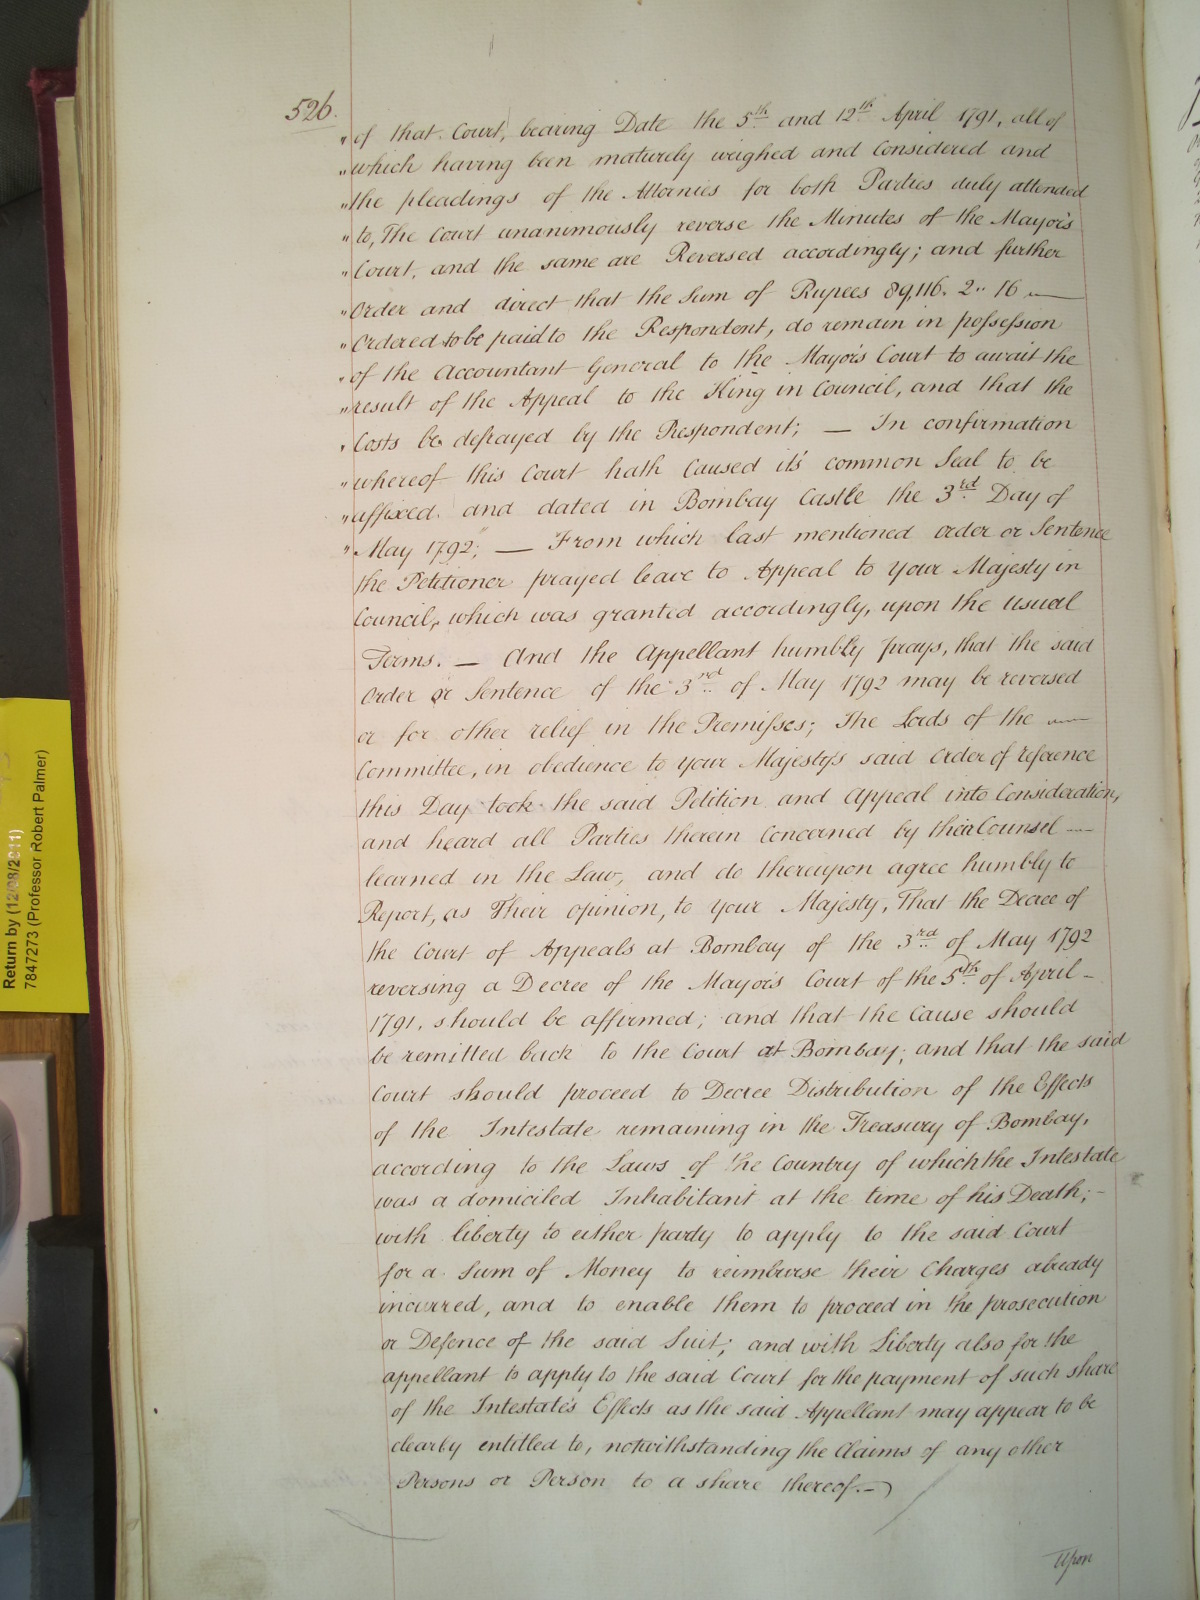 526.
" of that Court, bearing Date the 5th and 12th April 1791, all of
" which having been maturely weighed and Considered and
" the pleadings of the Attornies for both Parties duly attended
" to, The Court unanimously reverse the Minutes of the Mayor's
" Court, and the same are Reversed accordingly; and further
" Order and direct that the Sum of Rupees 89,116. 2.. 16 —
" Ordered to be paid to the Respondent, do remain in possession
" of the Accountant General to the Mayor's Court to await the
" result of the Appeal to the King in Council, and that the
" Costs be defrayed by the Respondent; — In confirmation
" whereof this Court hath Caused it's common Seal to be
" affixed and dated in Bombay Castle the 3rd Day of
" May 1792; — From which last mentioned order or Sentence
the Petitioner prayed leave to Appeal to your Majesty in
Council, which was granted accordingly, upon the usual
Terms. — And the Appellant humbly prays, that the said
Order or Sentence of the 3rd of May 1792 may be reversed
or for other relief in the Premisses; The Lords of the —
Committee, in obedience to your Majesty's said Order of reference
this Day took the said Petition and Appeal into Consideration,
and heard all Parties therein Concerned by their Counsel —
learned in the Law, and do thereupon agree humbly to
Report, as Their opinion, to your Majesty, That the Decree of
the Court of Appeals at Bombay of the 3rd of May 1792
reversing a Decree of the Mayor's Court of the 5th of April -
1791, should be affirmed; and that the Cause should
be remitted back to the Court at Bombay; and that the said
Court should proceed to Decree Distribution of the Effects
of the Intestate remaining in the Treasury of Bombay,
according to the Laws of the Country of which the Intestate
was a domiciled Inhabitant at the time of his Death; -
with liberty to either party to apply to the said Court
for a Sum of Money to reimburse their Charges already
incurred, and to enable them to proceed in the prosecution
or Defence of the said Suit; and with Liberty also for the
appellant to apply to the said Court for the payment of such share
of the Intestate's Effects as the said Appellant may appear to be
clearly entitled to, notwithstanding the Claims of any other
Persons or Person to a share thereof. —
Upon
Return by (12/08/2011)
7847273 (Professor Robert Palmer)